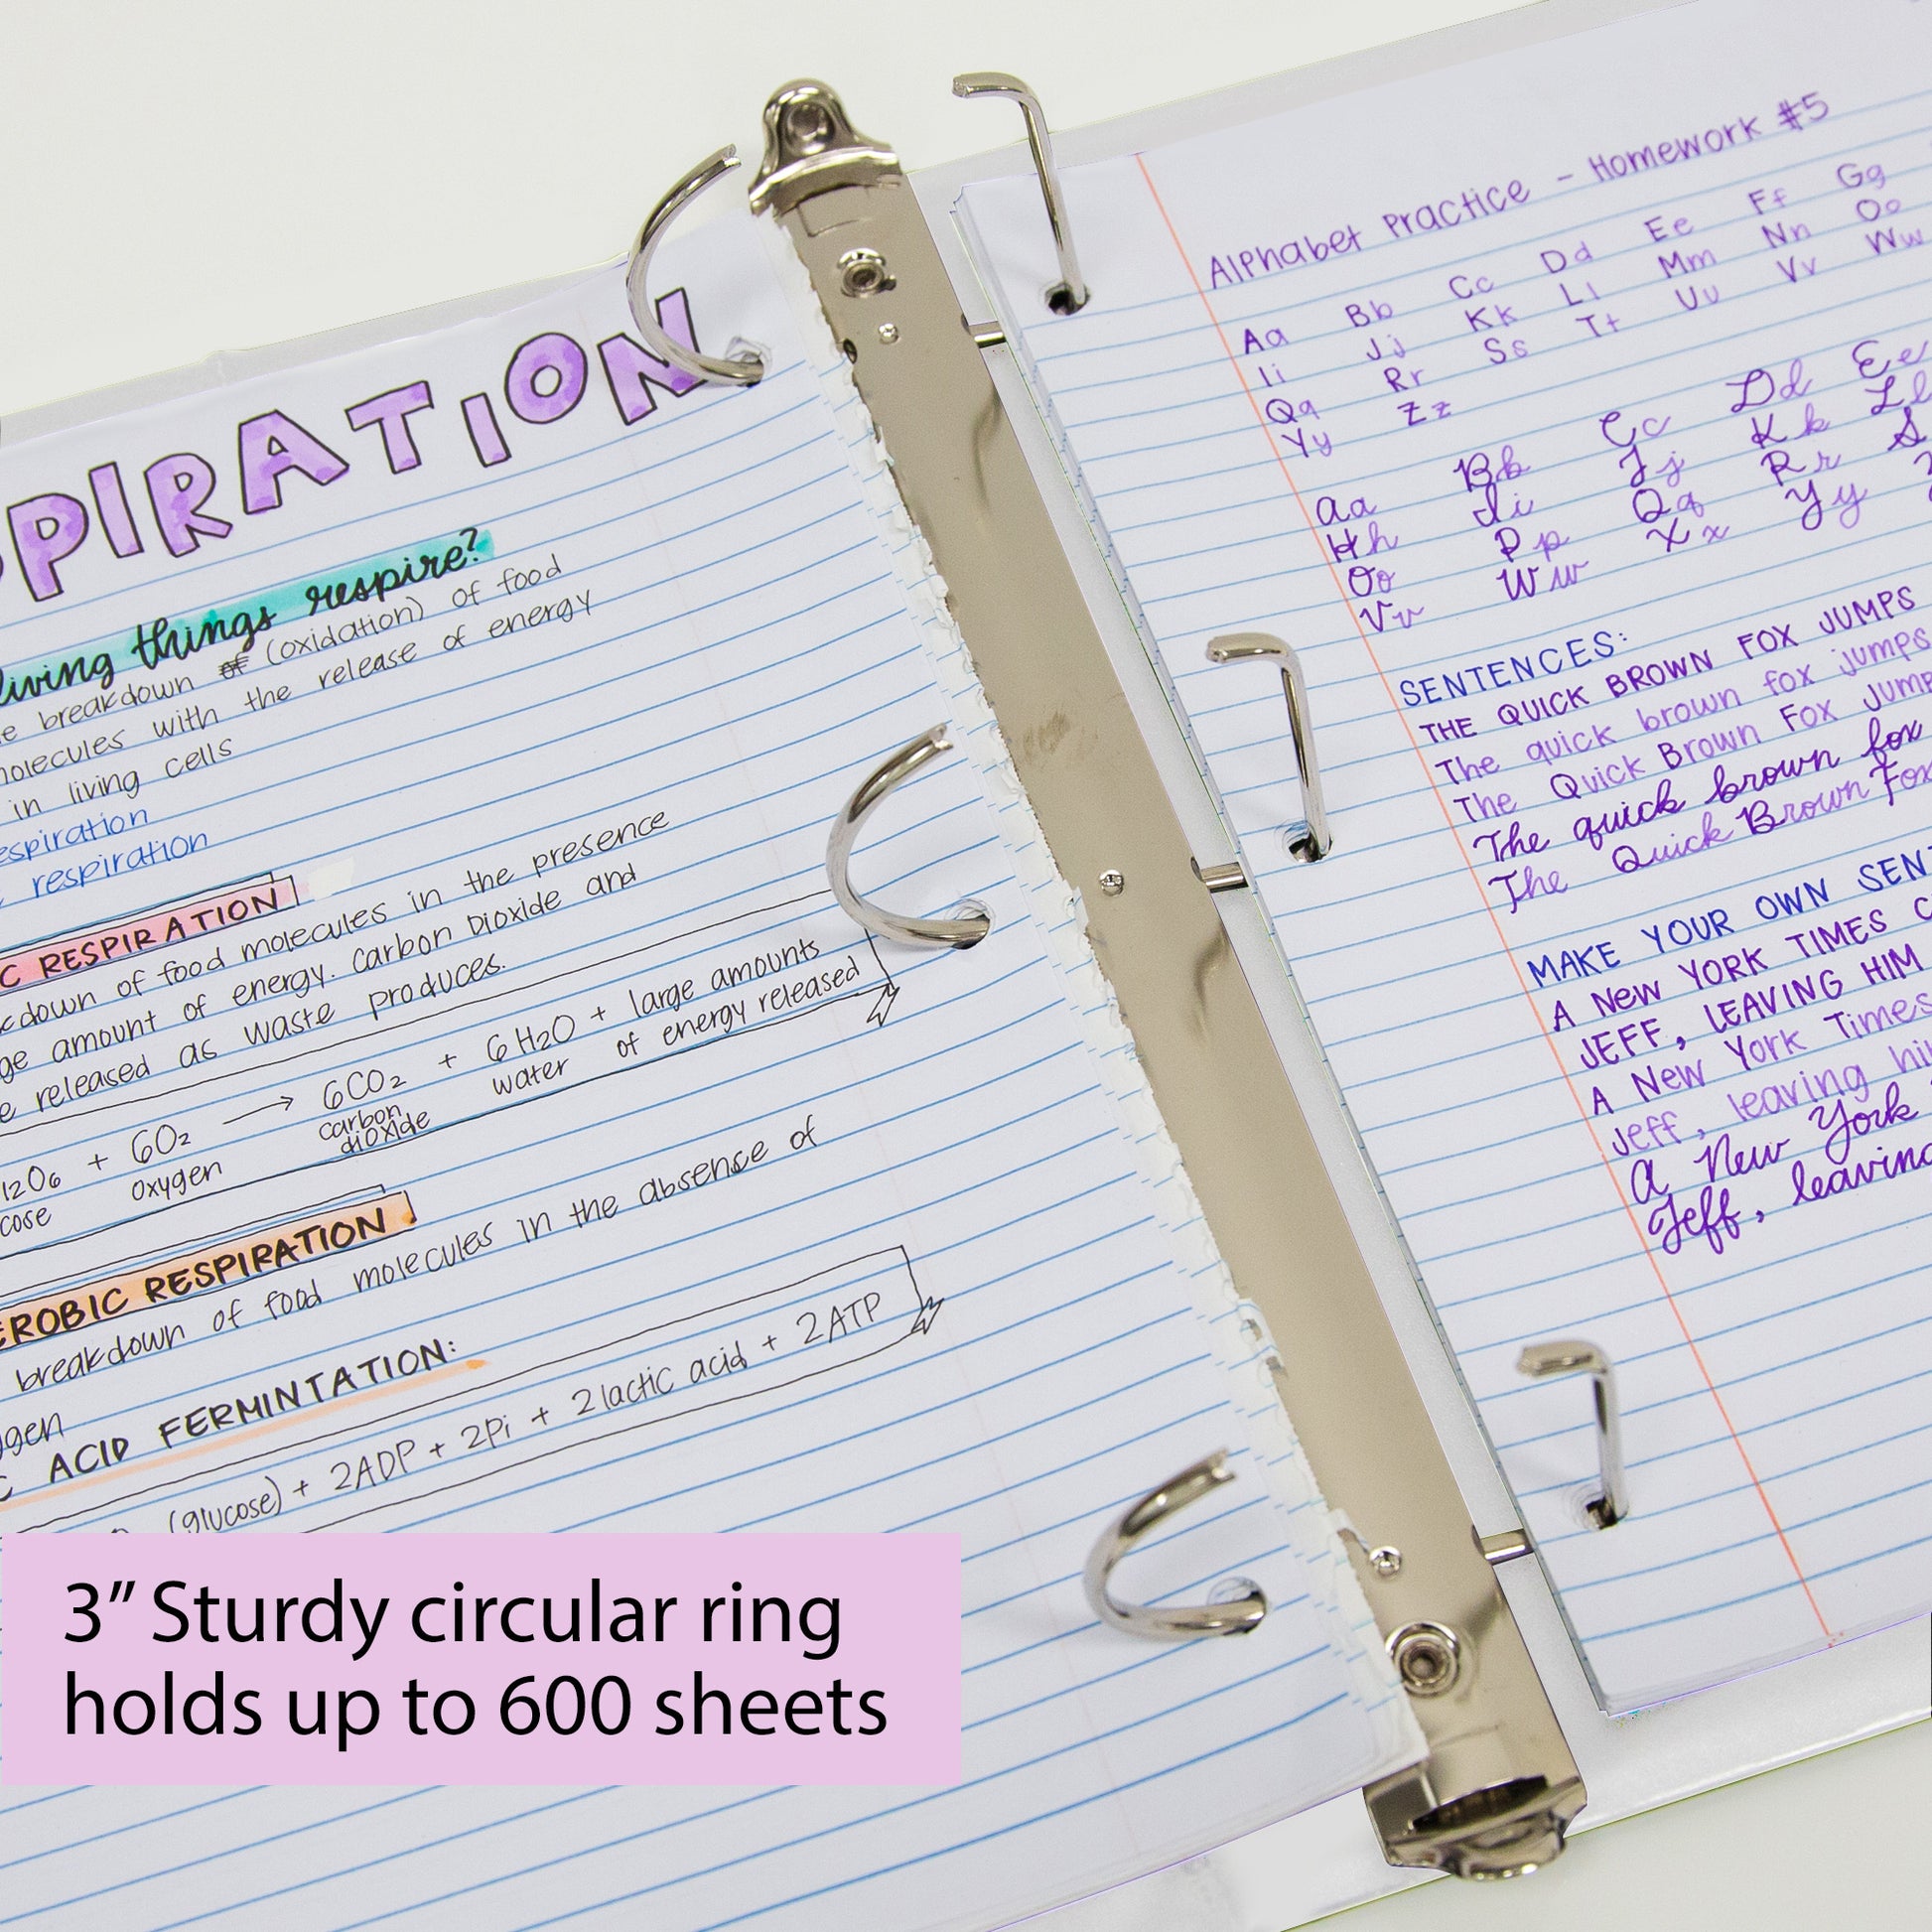 PIRATION
living things respire?
breakdown of (oxidation) of food
molecules with the release of energy
in living cells
respiration
respiration
C RESPIRATION
down of food molecules in the presence
amount of energy. Carbon Dioxide and
released as waste produces.
12O6 + 6O2 → 6CO2 + 6H2O + large amounts
oxygen carbon dioxide water of energy released
EROBIC RESPIRATION
breakdown of food molecules in the absence of
C ACID FERMINTATION:
(glucose) + 2ADP + 2Pi + 2lactic acid + 2ATP
Alphabet Practice - Homework #5
Aa Bb Cc Dd Ee Ff Gg
Ii Jj Kk Ll Mm Nn Oo
Qq Rr Ss Tt Uu Vv Ww
Yy Zz
Aa Bb Cc Dd Ee
Hh Ii Jj Kk Ll
Oo Pp Qq Rr S
Vv Ww Xx Yy
SENTENCES:
THE QUICK BROWN FOX JUMPS
The quick brown fox jumps
The Quick Brown Fox Jump
The quick brown fox
The Quick Brown Fox
MAKE YOUR OWN SENT
A NEW YORK TIMES C
JEFF, LEAVING HIM
A New York Times
Jeff, leaving hi
A New York
Jeff, leaving
3" Sturdy circular ring
holds up to 600 sheets